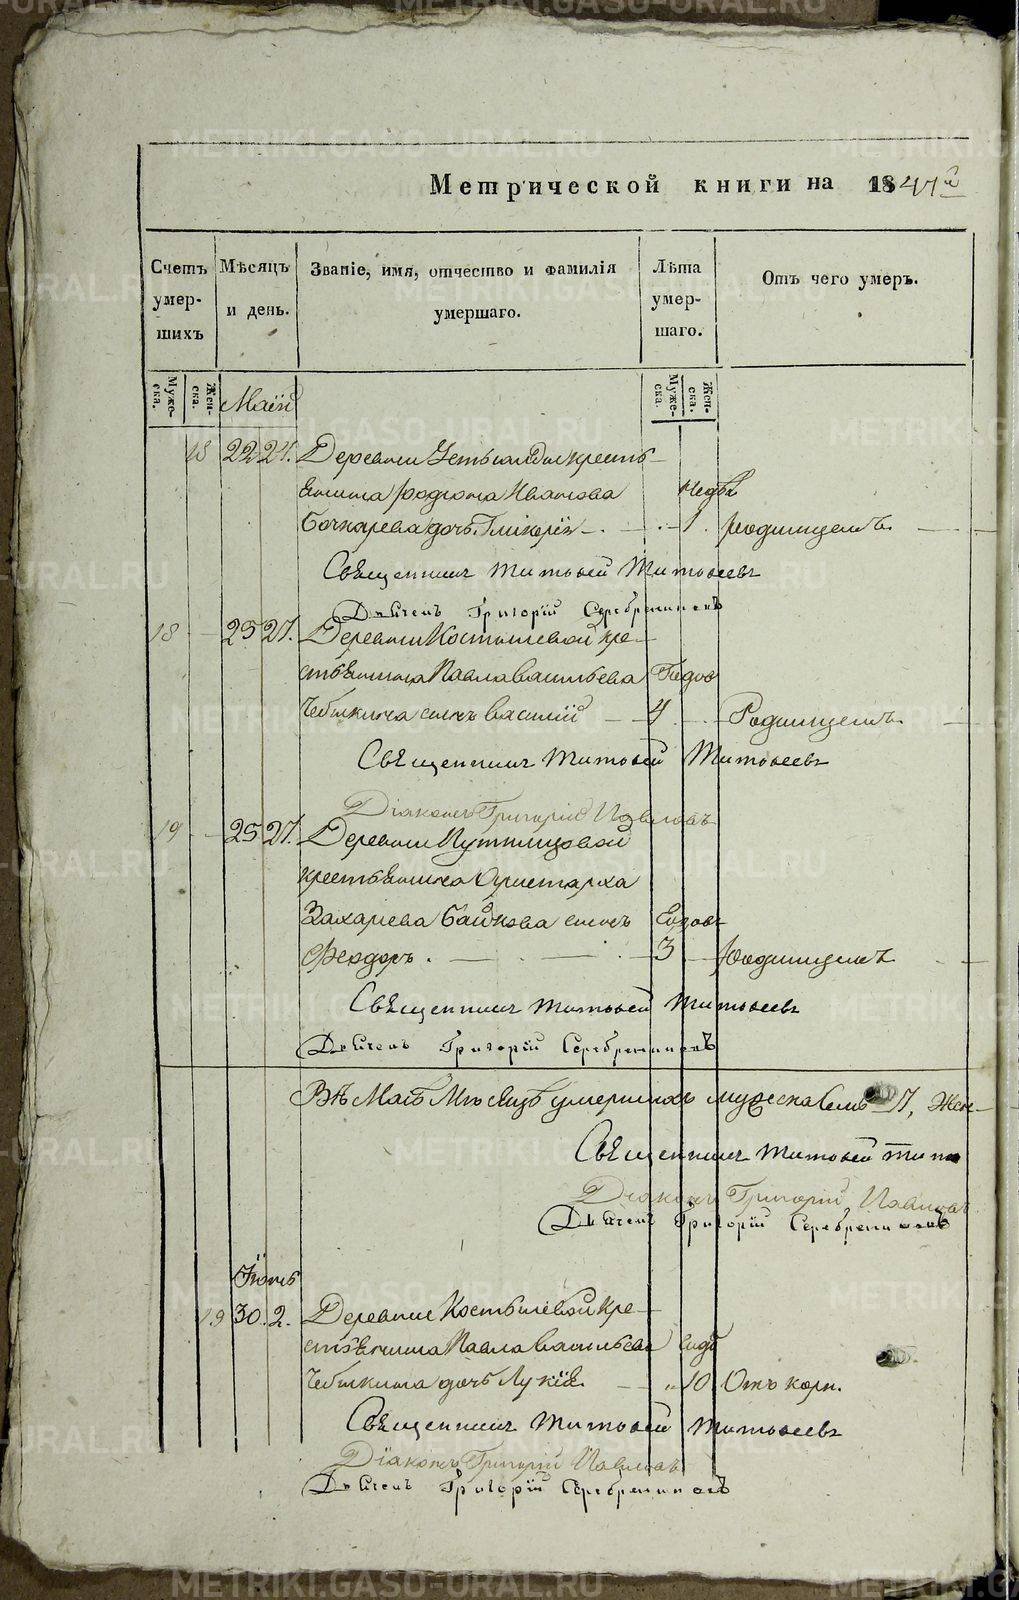 Метрической книги на 1847й
Счетъ умершихъ
Мѣсяцъ и день.
Званіе, имя, отчество и фамилія умершаго.
Лѣта умершаго.
Отъ чего умеръ.
Мужеска.
Женска.
Маій
Мужеска.
Женска.
18 22 24. Деревни крестъ-
янина Родиона Иванова недѣл
Бочкарева дочь Гликерія 1. Родимцемъ
Священникъ Матвей Матвеевъ
Дьячекъ Григорій Серебренниковъ
18 25 27. Деревни Костылевой кре-
стьянина Павла Васильева Годов
Чебыкина сынъ Василій 4 Родимцемъ
Священникъ Матвей Матвеевъ
Діаконъ Григорій Павловъ
19 25 27. Деревни Путиловой
крестьянина Аристарха
Захарьева Байнова сынъ Годов
Феодоръ. 3 Родимцемъ
Священникъ Матвей Матвеевъ
Дьячекъ Григорій Серебренниковъ
Въ Маѣ Мѣсяцѣ умершихъ мужеска семь 7, Жен-
Священникъ Матвей Матв
Діаконъ Григорій Павловъ
Дьячекъ Григорій Серебренниковъ
Іюнь
19 30. 2. Деревни Костылевой Кре-
стьянина Павла Васильева
Чебыкина дочь Лукія 10 Отъ кори.
Священникъ Матвей Матвеевъ
Діаконъ Григорій Павловъ
Дьячекъ Григорій Серебренниковъ
METRIKI.GASO-URAL.RU